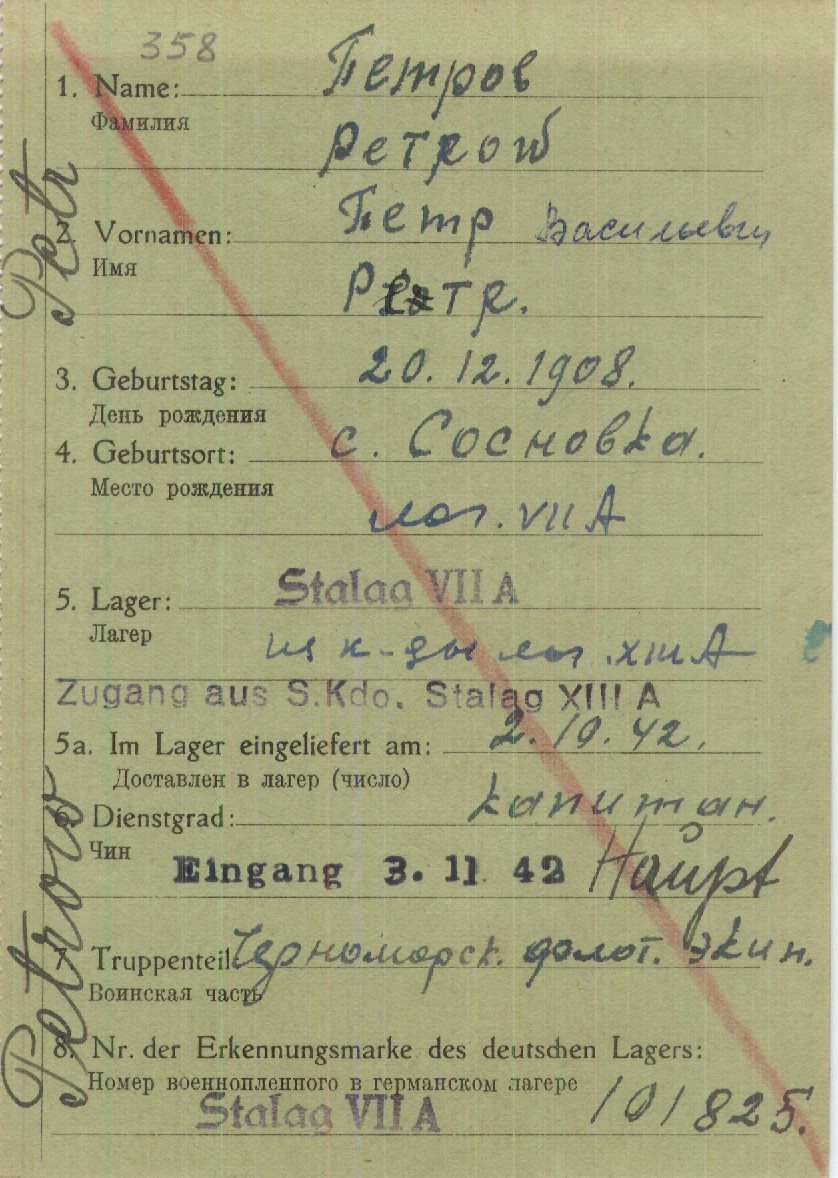 358
1. Name: Петров
Фамилия
Petrow
2. Vornamen: Петр Васильевич
Имя
Petr.
3. Geburtstag: 20.12.1908.
День рождения
4. Geburtsort: с. Сосновка.
Место рождения
лаг. VII A
5. Lager: Stalag VII A
Лагер
из к-ды лаг. XIII A
Zugang aus S.Kdo. Stalag XIII A
5a. Im Lager eingeliefert am: 2.10.42.
Доставлен в лагер (число)
6. Dienstgrad: капитан.
Чин
Eingang 3. 11 42 Haupt
7. Truppenteil Черноморск. флот. экип.
Воинская часть
8. Nr. der Erkennungsmarke des deutschen Lagers:
Номер военнопленного в германском лагере
Stalag VII A 101825.
Petrow Petr